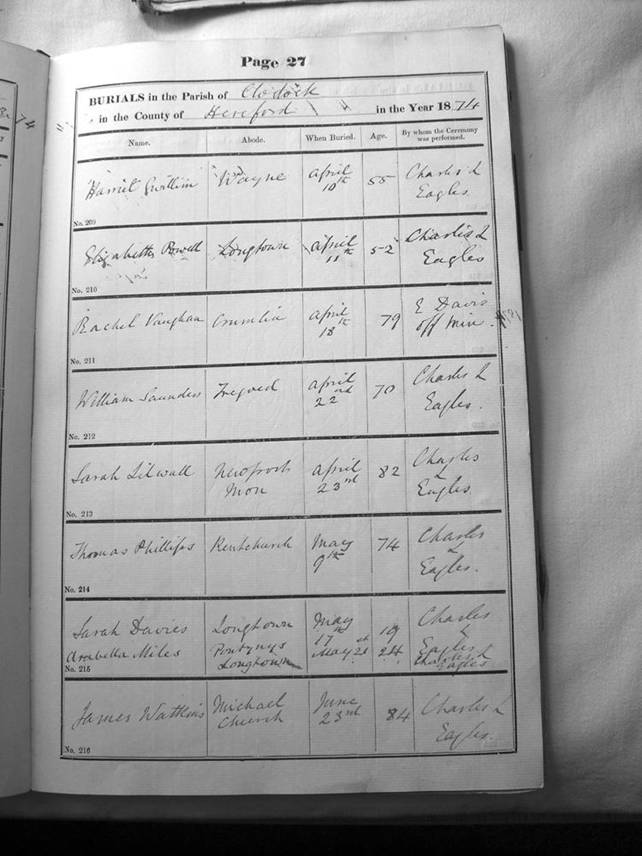 Page 27
BURIALS in the Parish of Clodock
in the County of Hereford in the Year 1874
Name. Abode. When Buried. Age. By whom the Ceremony
was performed.
Harriet Gwillim Wayne April 55 Charles L
10th Eagles.
No. 209
Elizabeth Powell Longtown April 52 Charles L
11th Eagles
No. 210
Rachel Vaughan April 79 E Davis
18th off Min.
No. 211
William Saunders Tregoed April 70 Charles L
22nd Eagles.
No. 212
Sarah Lilwall Newport April 82 Charles
Mon 23rd L
Eagles
No. 213
Thomas Phillips Kentchurch May 74 Charles
9th L
Eagles.
No. 214
Sarah Davies Longtown May 19 Charles
17th L
Arabella Miles Pontynys May 21st 24 Eagles
Longtown Charles L
Eagles
No. 215
James Watkins Michael June 84 Charles L
Church 23rd Eagles.
No. 216